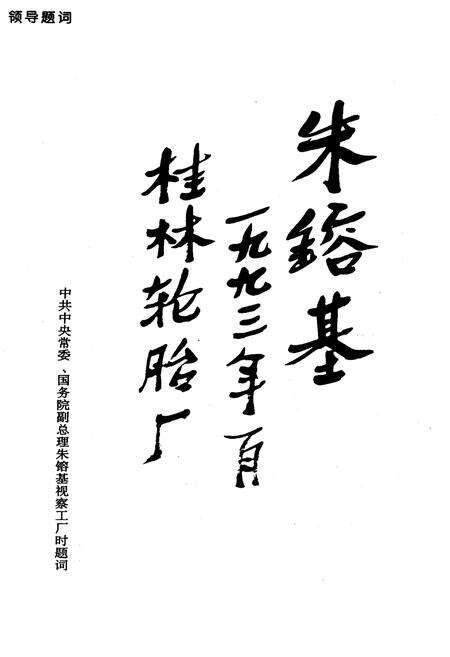 领导题词
朱鎔基
一九九三年一月
桂林轮胎厂
中共中央常委、国务院副总理朱镕基视察工厂时题词